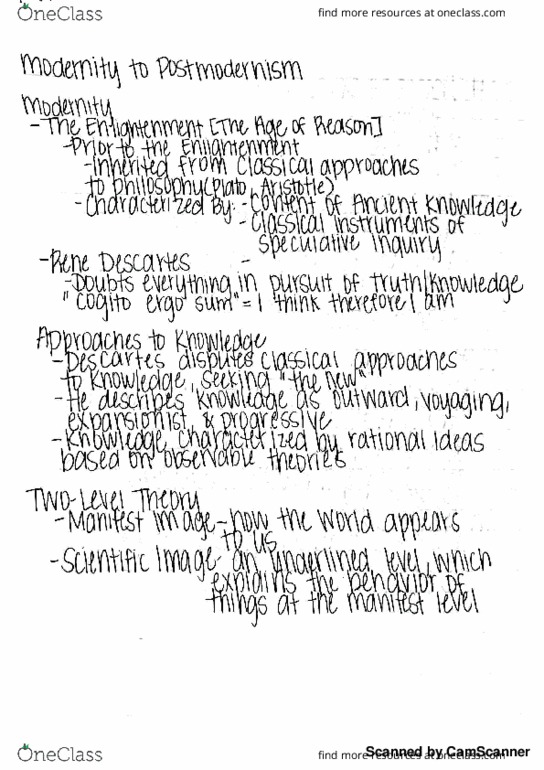 OneClass
find more resources at oneclass.com
Modernity to Postmodernism
Modernity
-The Enlightenment [The Age of Reason]
-Prior to the Enlightenment
-Inherited from Classical approaches
to philosophy(Plato, Aristotle)
-Characterized by: -Content of Ancient Knowledge
-Classical instruments of
speculative Inquiry
-Rene Descartes -
-Doubts everything in pursuit of truth/Knowledge
"cogito ergo sum" = I think therefore I am
Approaches to Knowledge
-Descartes disputes classical approaches
to Knowledge, seeking "the new"
-He describes knowledge as outward, voyaging,
expansionist, & progressive
-Knowledge, characterized by rational ideas
based on observable theories
Two-Level Theory
-Manifest image-how the world appears
to us
-Scientific Image-an underlined level, which
explains the behavior of
things at the manifest level
OneClass
find more resources at oneclass.com
Scanned by CamScanner